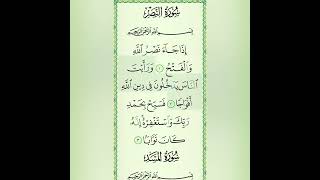 سُورَةُ النَّصْرِ
بِسْمِ اللَّهِ الرَّحْمَٰنِ الرَّحِيمِ
إِذَا جَاءَ نَصْرُ اللَّهِ
وَالْفَتْحُ ١ وَرَأَيْتَ
النَّاسَ يَدْخُلُونَ فِي دِينِ اللَّهِ
أَفْوَاجًا ٢ فَسَبِّحْ بِحَمْدِ
رَبِّكَ وَاسْتَغْفِرْهُ إِنَّهُ
كَانَ تَوَّابًا ٣
سُورَةُ المَسَد
بِسْمِ اللَّهِ الرَّحْمَٰنِ الرَّحِيمِ